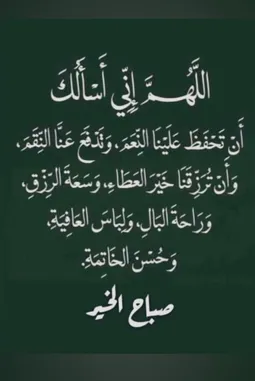 اللَّهُمَّ إِنِّي أَسْأَلُكَ
أَنْ تَحْفَظَ عَلَيْنَا النِّعَمَ، وَتَدْفَعَ عَنَّا النِّقَمَ،
وَأَنْ تُرْزِقَنَا خَيْرَ العَطَاءِ، وَسَعَةَ الرِّزْقِ،
وَرَاحَةَ البَالِ، وَلِبَاسَ العَافِيَةِ،
وَحُسْنَ الخَاتِمَةِ.
صباح الخير